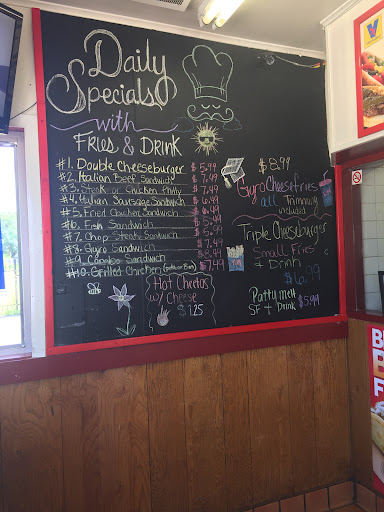 Daily
Specials
with
FRIES & DRINK
#1. Double Cheeseburger $5.99
#2. Italian Beef Sandwich $7.99
#3. Steak or Chicken Philly $7.49
#4. Italian Sausage Sandwich $6.49
#5. Fried Chicken Sandwich $6.49
#6. Fish Sandwich $5.49
#7. Chop Steak Sandwich $7.49
#8. Gyro Sandwich $7.49
#9. Combo Sandwich $8.99
#10. Grilled Chicken $7.49
Hot Cheetos
w/ Cheese
$1.25
$8.99
Gyro Cheese Fries
all Trimming
included
Triple Cheeseburger
Small Fries
+ Drink
$6.99
Patty melt
SF + Drink $5.99
V